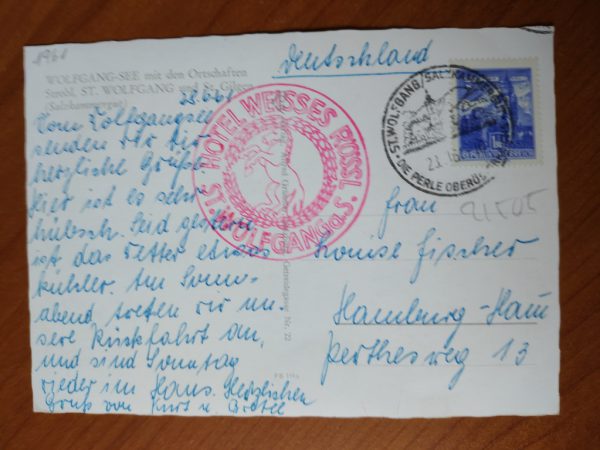 1961
WOLFGANG-SEE mit den Ortschaften
Strobl, ST. WOLFGANG und St. Gilgen
(Salzkammergut)
Vom Wolfgangsee
senden wir Dir
herzliche Grüße.
Hier ist es sehr
hübsch. Seid gestern
ist das Wetter etwas
kühler. Am Sonn-
abend treten wir un-
sere Rückfahrt an,
und sind Sonntag
wieder im Haus. Herzlichen
Gruß von Kurt u. Gretel
HOTEL WEISSES RÖSSL
ST. WOLFGANG a. S.
Deutschland
ST. WOLFGANG / SALZKAMMERGUT
DIE PERLE
REPUBLIK ÖSTERREICH
Frau
21505
Louise Fischer
Hamburg-Ham
Perthesweg 13